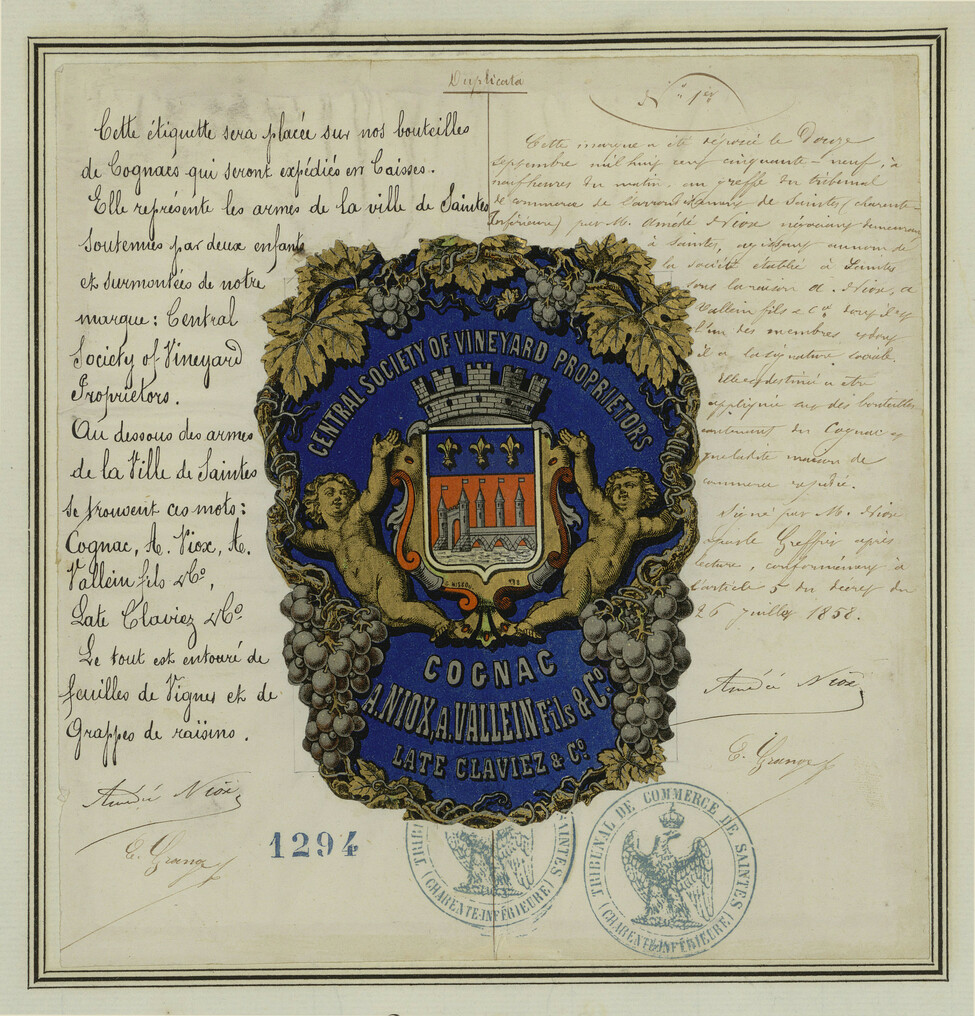 Duplicata
Cette étiquette sera placée sur nos bouteilles
de Cognacs qui seront expédiés en Caisses.
Elle représente les armes de la ville de Saintes
soutenues par deux enfants
et surmontées de notre
marque: Central
Society of Vineyard
Proprietors.
Au dessous des armes
de la Ville de Saintes
se trouvent ces mots:
Cognac, A. Niox, A.
Vallein fils & Cº,
Late Claviez & Cº
Le tout est entouré de
feuilles de Vignes et de
Grappes de raisins.
Amédée Niox
E. Grange
1294
CENTRAL SOCIETY OF VINEYARD PROPRIETORS
COGNAC
A. NIOX, A. VALLEIN Fils & Cº.
LATE CLAVIEZ & Cº
Nº 1er
Cette marque a été déposée le Douze
septembre mil huit cent cinquante-neuf, à
neuf heures du matin, au greffe du tribunal
de commerce de l'arrondissement de Saintes (Charente-
Inférieure) par M. Amédée Niox négociant demeurant
à Saintes, agissant au nom de
la société établie à Saintes
sous la raison A. Niox, A.
Vallein fils & Cº dont il est
l'un des membres et dont
il a la signature sociale.
Elle est destinée à être
appliquée sur des bouteilles
contenant du Cognac
que ladite maison de
commerce expédie.
Signé par M. Niox
après
lecture, conformément à
l'article 5 du décret du
26 Juillet 1858.
Amédée Niox
E. Grange
TRIBUNAL DE COMMERCE DE SAINTES
(CHARENTE-INFÉRIEURE)
TRIB
AINTES
(CHARENTE-INFÉRIEURE)